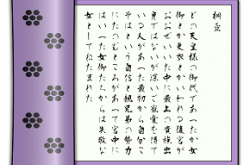 桐壺
どの天皇様の御代であったか女
御とか更衣とかいわれる後宮が
おおぜいいた中に最上の貴族出
身ではないが深い御愛寵を得て
いる人があった最初から自分こ
そはという自信と親兄弟の勢力
にたのむところがあって宮中に
はいった女御たちからは失敬な
女としてねたまれた